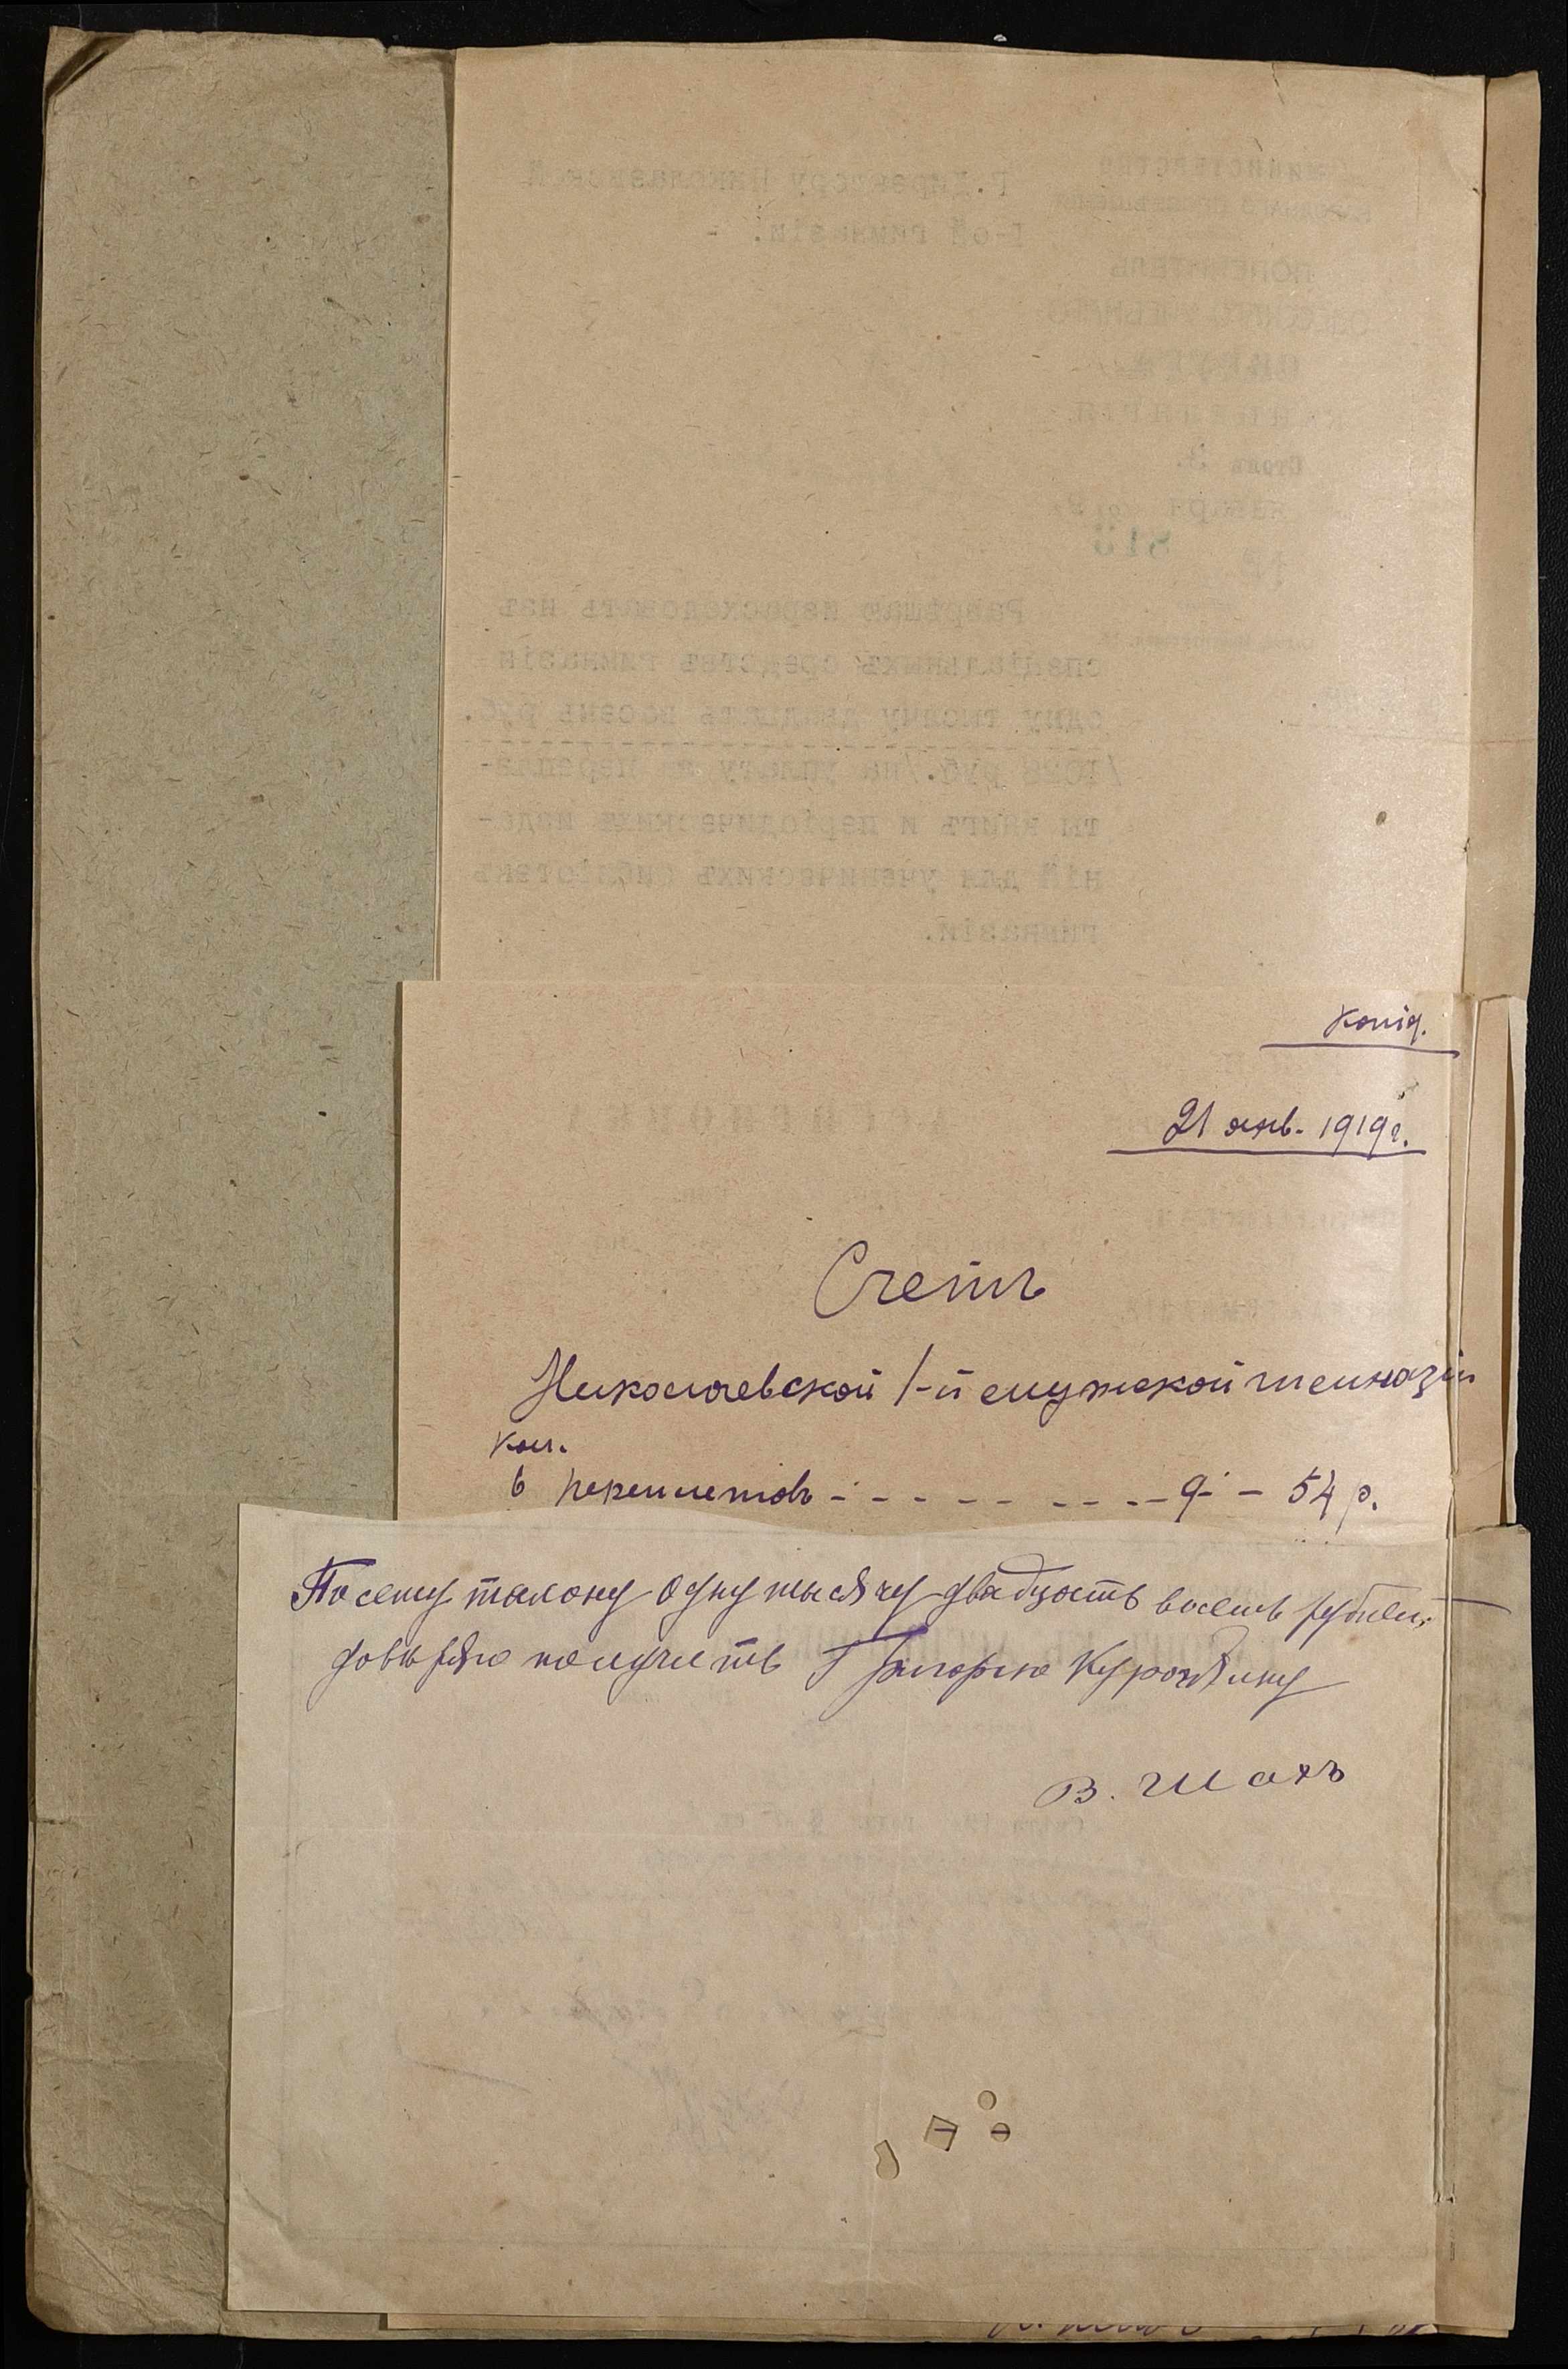 Г. Директору Николаевской
I-ой гимназіи. -
МИНИСТЕРСТВО
НАРОДНАГО ПРОСВѢЩЕНІЯ
ПОПЕЧИТЕЛЬ
ОДЕССКАГО УЧЕБНАГО
ОКРУГА
КАНЦЕЛЯРІЯ
Столъ 3.
января
813
Разрѣшаю израсходовать изъ
спеціальныхъ средствъ гимназіи
одну тысячу двадцать восемь руб.
/1028 руб./на уплату за перепле-
ты книгъ и періодическихъ изда-
ній для ученическихъ библіотекъ
гимназіи.
Копія.
21 янв. 1919 г.
Счетъ
Николаевской 1-й мужской гимназіи
Кол.
6 переплетовъ - - - - - - - - - 9- - 54 р.
По сему талону одну тысячу двадцать восемь рублей
довѣряю получить Григорію Курочкину
В. Шахъ